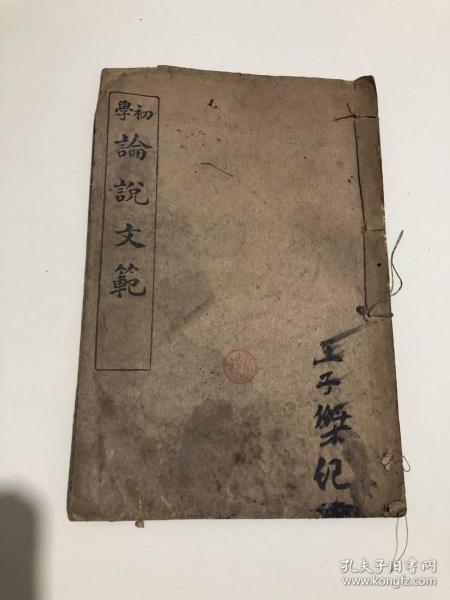 初學
論說文範
王子傑纪
孔夫子旧书网
www.kongfz.com